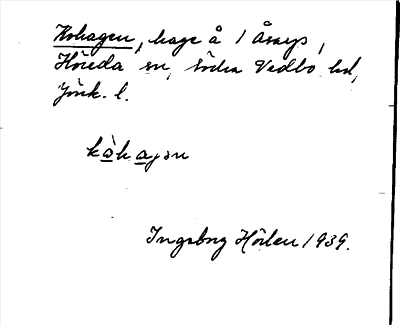 Kohagen, hage å 1 Åsarp,
Höreda sn, Södra Vedbo hd,
Jönk. l.
kòhagən
Ingeborg Hörlen 1939.